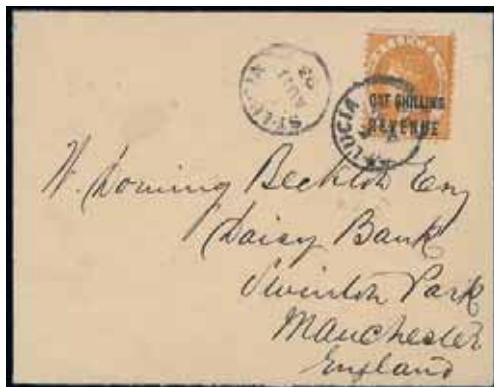 ST. LUCIA
ST. LUCIA
ONE SHILLING
REVENUE
W. Dorning Beckton Esq
Daisy Bank
Swinton Park
Manchester
England